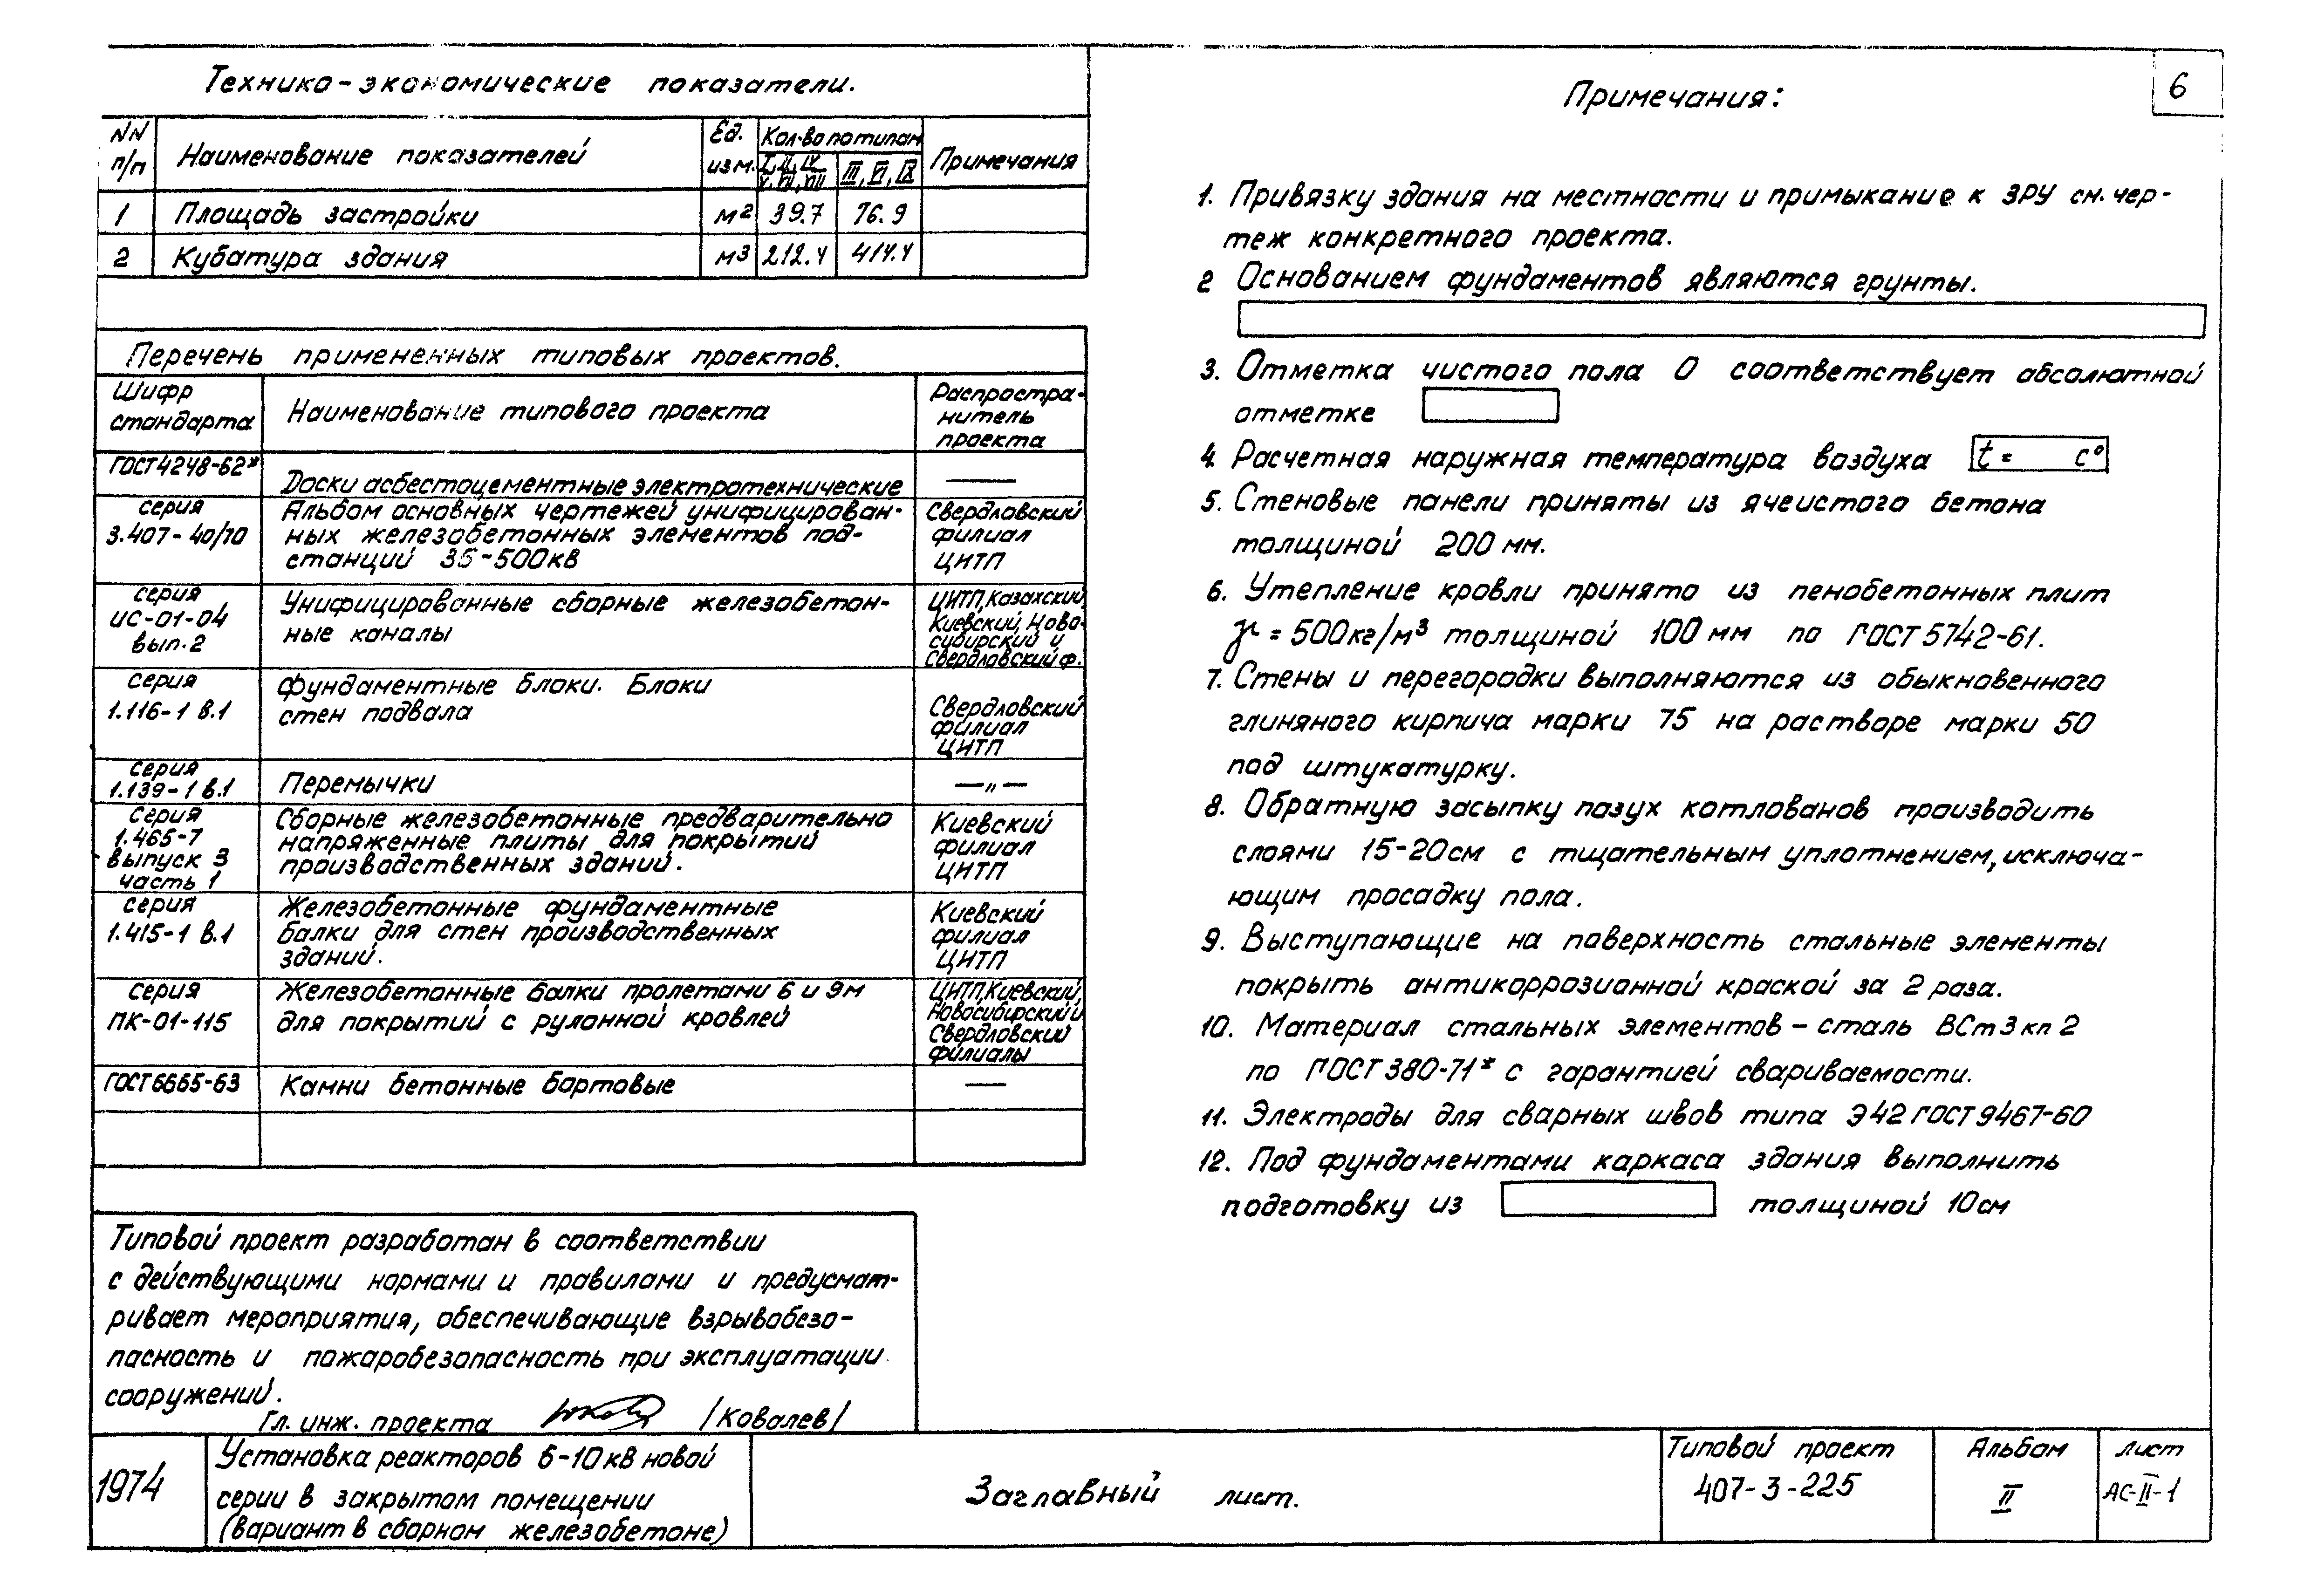 Технико-экономические показатели.
NN п/п
Наименование показателей
Ед. изм.
Кол-во по типам
I, II, IV
V, VII, VIII
III, VI, IX
Примечания
1 Площадь застройки м2 39.7 76.9
2 Кубатура здания м3 212.4 414.4
Перечень примененных типовых проектов.
Шифр
стандарта
Наименование типового проекта
Распростра-
нитель
проекта
ГОСТ 4248-62*
Доски асбестоцементные электротехнические —
серия
3.407-40/70
Альбом основных чертежей унифицирован-
ных железобетонных элементов под-
станций 35-500кв
Свердловский
филиал
ЦИТП
серия
ИС-01-04
вып.2
Унифицированные сборные железобетон-
ные каналы
ЦИТП, Казахский,
Киевский, Ново-
сибирский и
Свердловский ф.
серия
1.116-1 в.1
Фундаментные блоки. Блоки
стен подвала
Свердловский
филиал
ЦИТП
серия
1.139-1 в.1
Перемычки
—„—
Серия
1.465-7
выпуск 3
часть 1
Сборные железобетонные предварительно
напряженные плиты для покрытий
производственных зданий.
Киевский
филиал
ЦИТП
серия
1.415-1 в.1
Железобетонные фундаментные
балки для стен производственных
зданий.
Киевский
филиал
ЦИТП
серия
ПК-01-115
Железобетонные балки пролетами 6 и 9м
для покрытий с рулонной кровлей
ЦИТП, Киевский,
Новосибирский и
Свердловский
филиалы
ГОСТ 6665-63
Камни бетонные бортовые —
Типовой проект разработан в соответствии
с действующими нормами и правилами и предусмат-
ривает мероприятия, обеспечивающие взрывобезо-
пасность и пожаробезопасность при эксплуатации
сооружений.
Гл. инж. проекта /Ковалев/
6
Примечания:
1. Привязку здания на местности и примыкание к ЗРУ см. чер-
теж конкретного проекта.
2 Основанием фундаментов являются грунты.
3. Отметка чистого пола 0 соответствует абсолютной
отметке
4. Расчетная наружная температура воздуха t= c°
5. Стеновые панели приняты из ячеистого бетона
толщиной 200 мм.
6. Утепление кровли принято из пенобетонных плит
γ = 500кг/м3 толщиной 100 мм по ГОСТ 5742-61.
7. Стены и перегородки выполняются из обыкновенного
глиняного кирпича марки 75 на растворе марки 50
под штукатурку.
8. Обратную засыпку пазух котлованов производить
слоями 15-20см с тщательным уплотнением, исключа-
ющим просадку пола.
9. Выступающие на поверхность стальные элементы
покрыть антикоррозионной краской за 2 раза.
10. Материал стальных элементов - сталь ВСт3кп2
по ГОСТ 380-71* с гарантией свариваемости.
11. Электроды для сварных швов типа Э42 ГОСТ 9467-60
12. Под фундаментами каркаса здания выполнить
подготовку из толщиной 10см
1974
Установка реакторов 6-10кв новой
серии в закрытом помещении
(вариант в сборном железобетоне)
Заглавный лист.
Типовой проект
407-3-225
Альбом
II
лист
АС-II-1